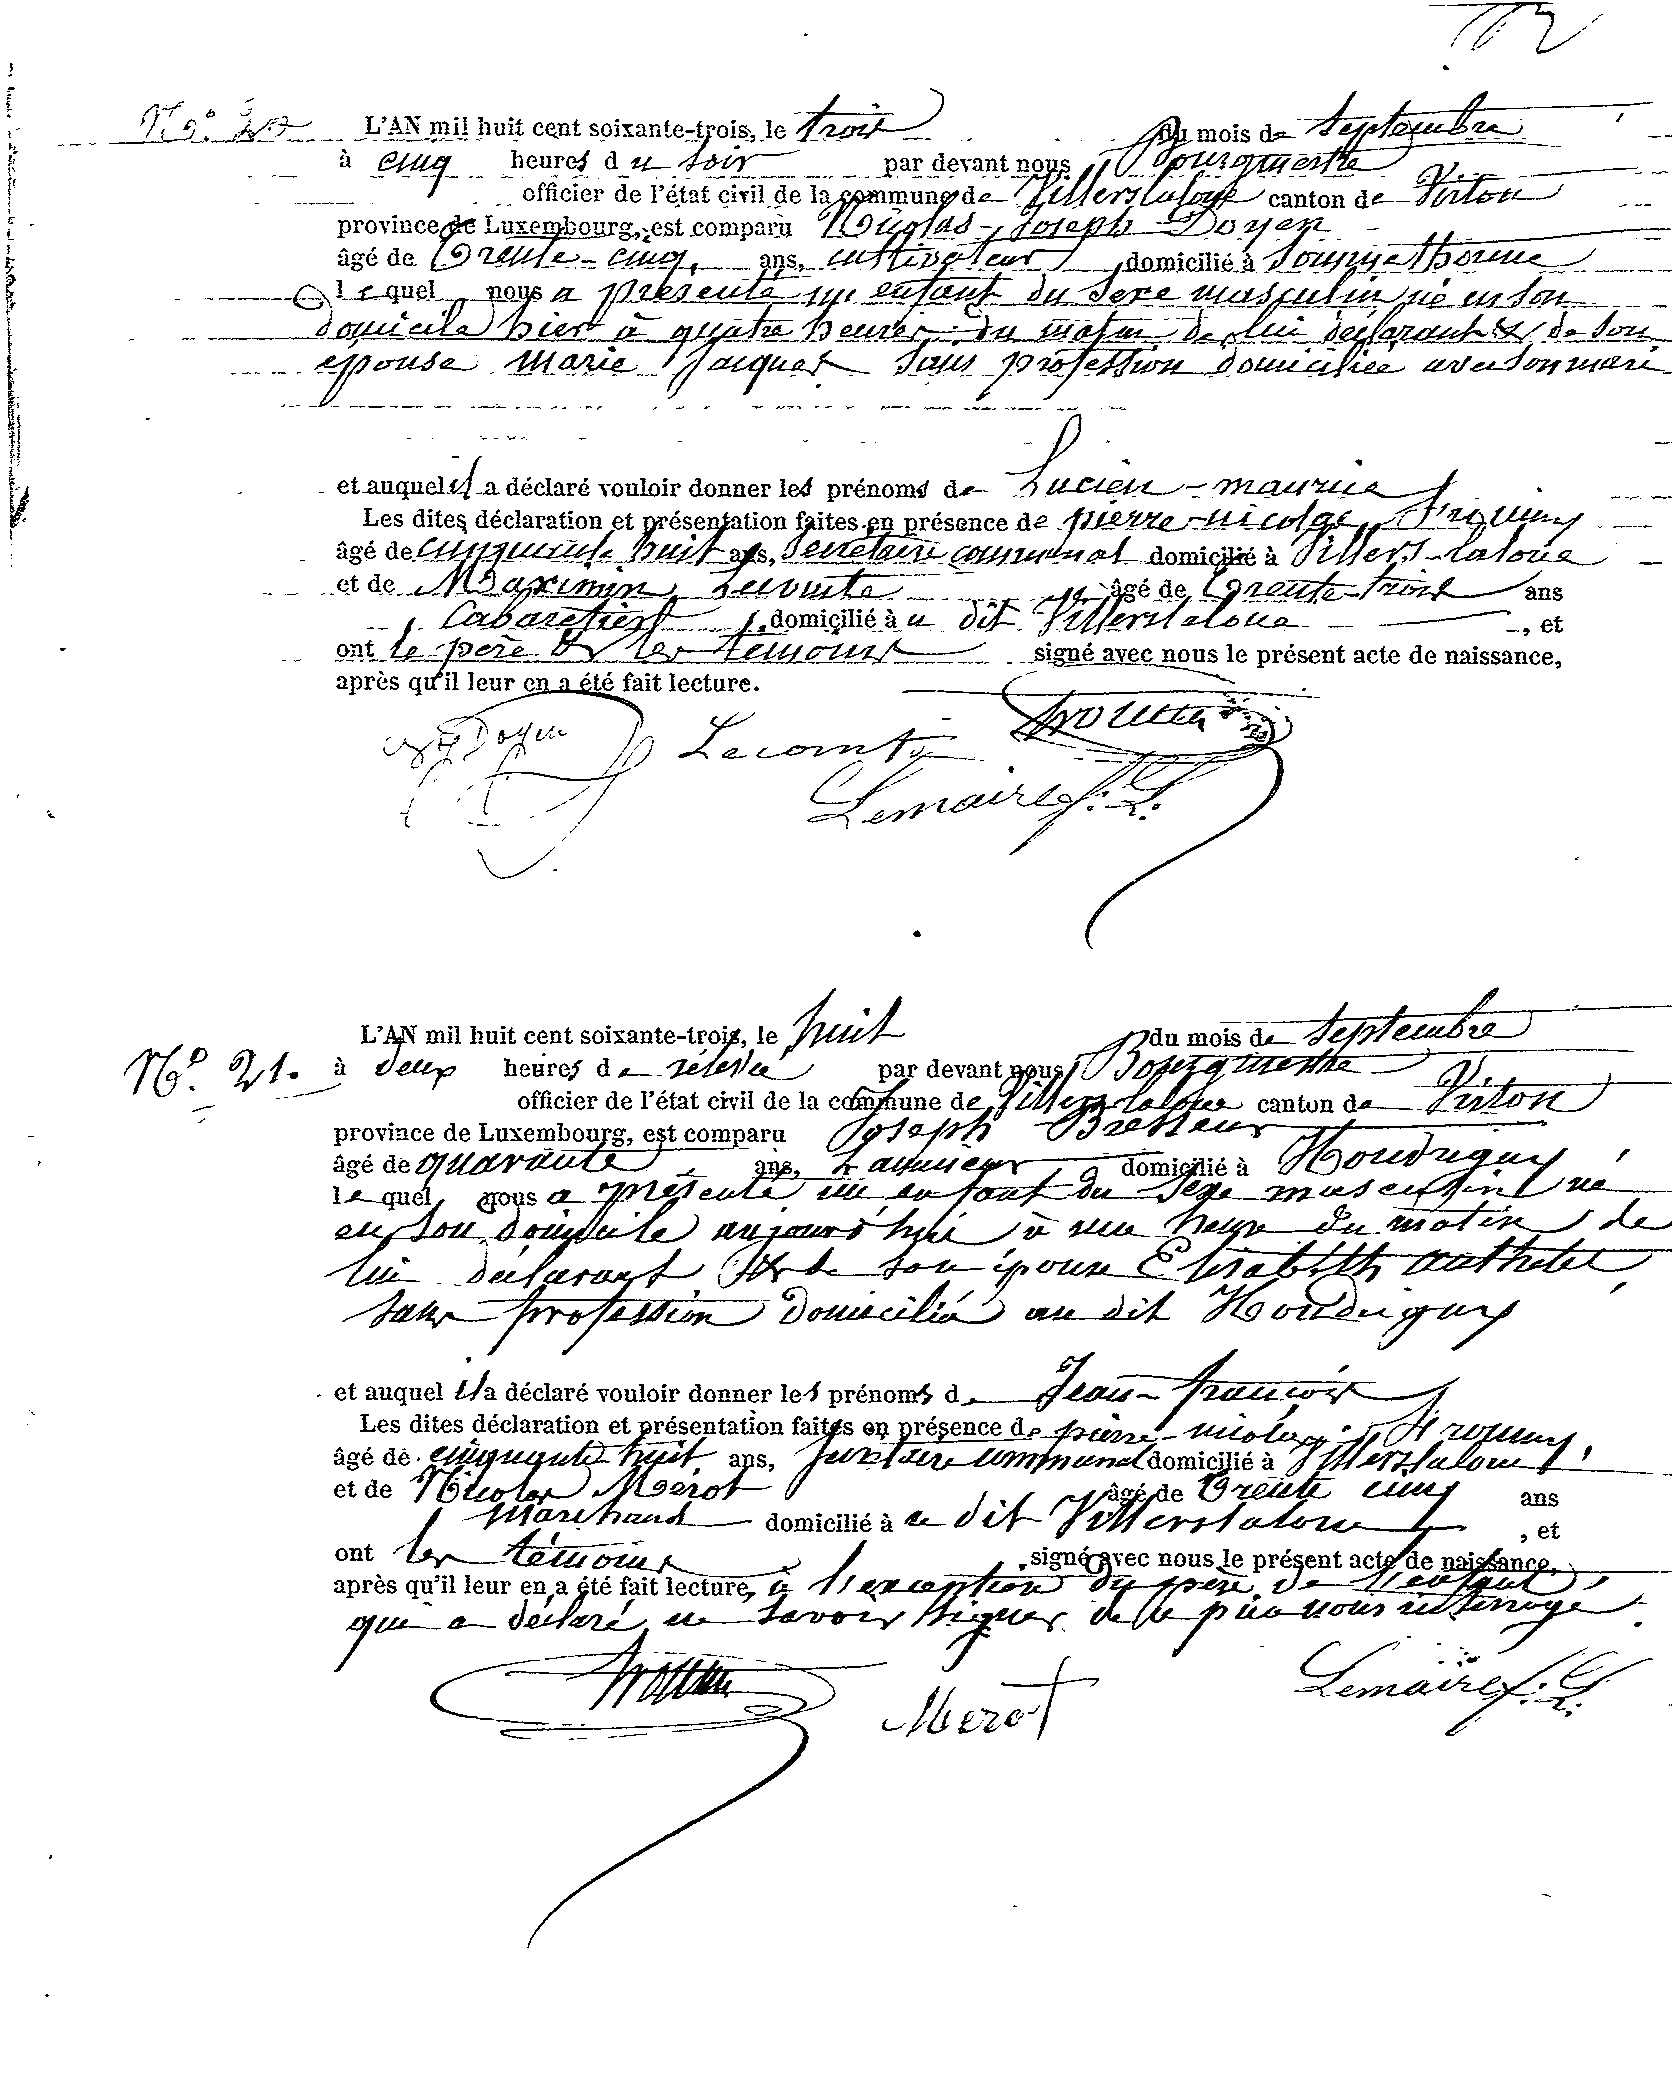 N.º 20
L'AN mil huit cent soixante-trois, le trois du mois de septembre
à cinq heures du soir par devant nous Bourgmestre
officier de l'état civil de la commune de Villerslaloue canton de Virton
province de Luxembourg, est comparu Nicolas-Joseph Doyen
âgé de Trente-cinq ans, cultivateur domicilié à Sommethonne
lequel nous a présenté un enfant du sexe masculin né en son
domicile hier à quatre heures du matin de lui déclarant & de son
épouse marie Jacques sans profession domiciliée avec son mari
et auquel il a déclaré vouloir donner les prénoms de Lucien-maurice
Les dites déclaration et présentation faites en présence de pierre-nicolas
âgé de cinquante huit ans, secrétaire communal domicilié à Villers-laloue
et de Maximin Lecomte âgé de Trente-trois ans
Cabaretier, domicilié à u dit Villerslaloue, et
ont le père & les témoins signé avec nous le présent acte de naissance,
après qu'il leur en a été fait lecture.
Doyen Lecomte
Lemaire f. L.
N.º 21.
L'AN mil huit cent soixante-trois, le huit du mois de septembre
à deux heures de relevée par devant nous Bourgmestre
officier de l'état civil de la commune de Villerslaloue canton de Virton
province de Luxembourg, est comparu Joseph Bresseur
âgé de quarante ans, domicilié à Houdrigny
lequel nous a présenté un enfant du sexe masculin né
en son domicile aujourd'hui à une heure du matin de
lui déclarant & de son épouse Elisabeth
sans profession domiciliée au dit Houdrigny
et auquel il a déclaré vouloir donner les prénoms de Jean-françois
Les dites déclaration et présentation faites en présence de pierre-nicolas
âgé de cinquante huit ans, secrétaire communal domicilié à Villerslaloue
et de Nicolas Mérot âgé de Trente cinq ans
Marchand domicilié à u dit Villerslaloue, et
ont les témoins signé avec nous le présent acte de naissance,
après qu'il leur en a été fait lecture, à l'exception du père de l'enfant
qui a déclaré ne savoir signer de ce par nous interrogé.
Merot Lemaire f. L.